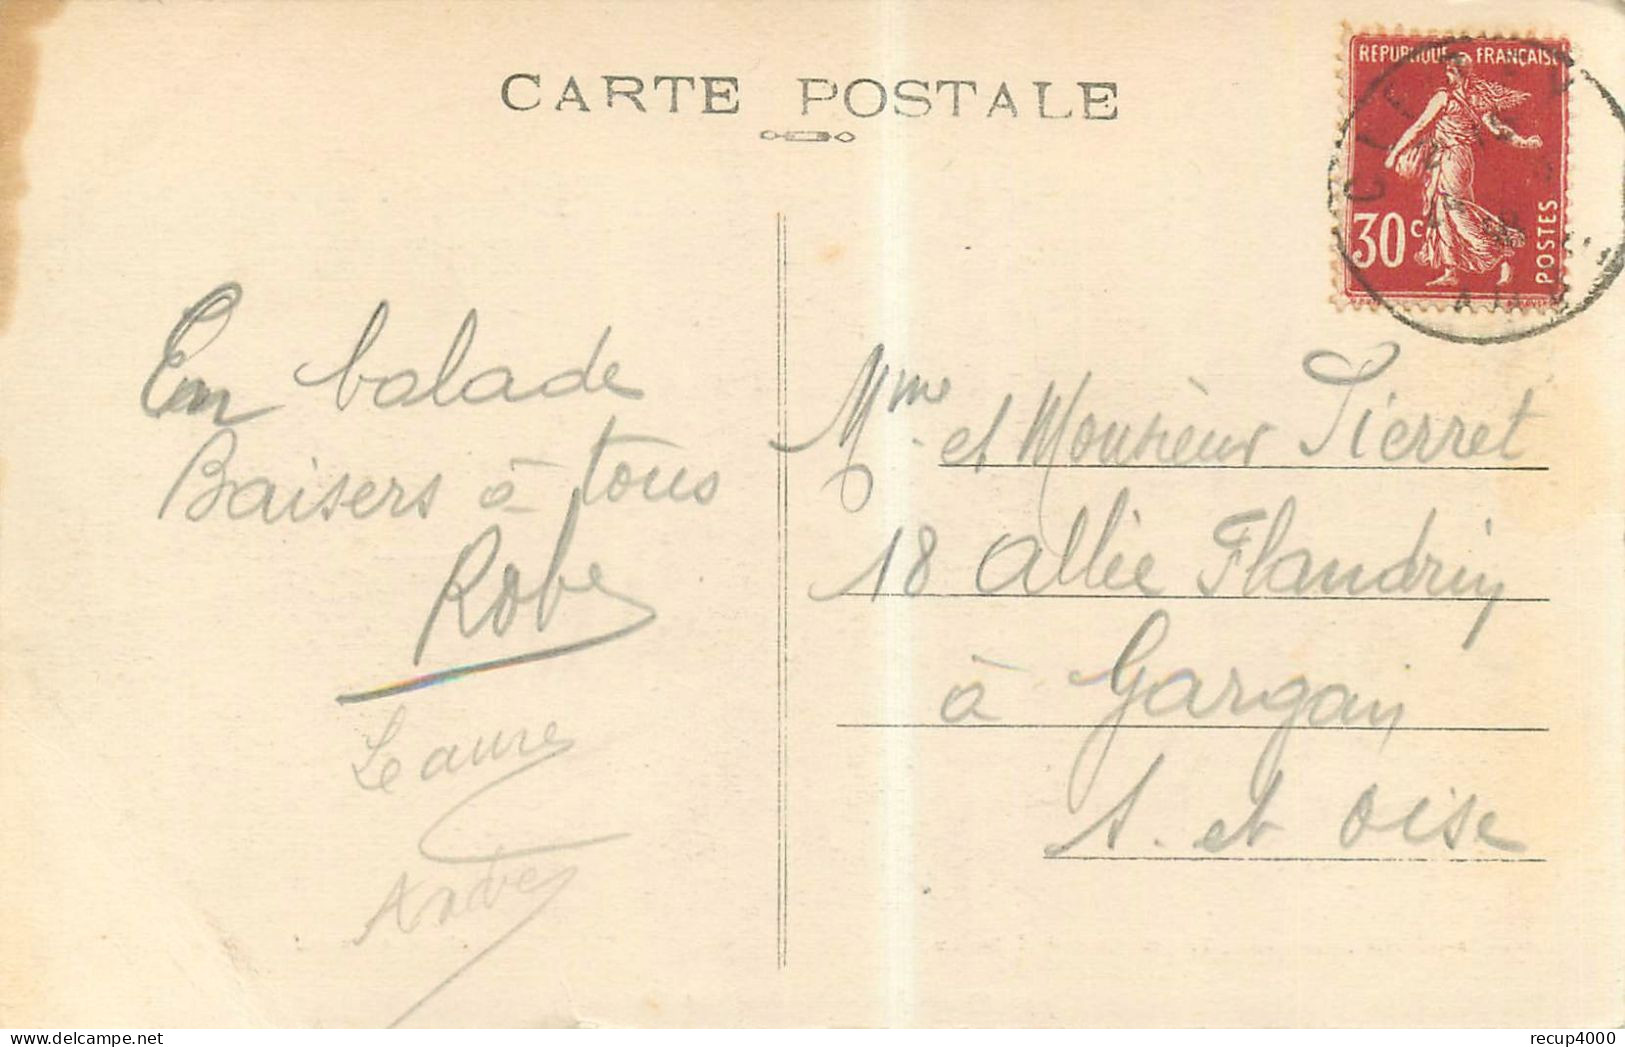 CARTE POSTALE
REPUBLIQUE FRANCAISE
30c
POSTES
En balade
Baisers à tous
Robe
Laure
Andre
Mme et Monsieur Pierret
18 Allée Flandrin
à Gargan
S. et Oise
recup4000